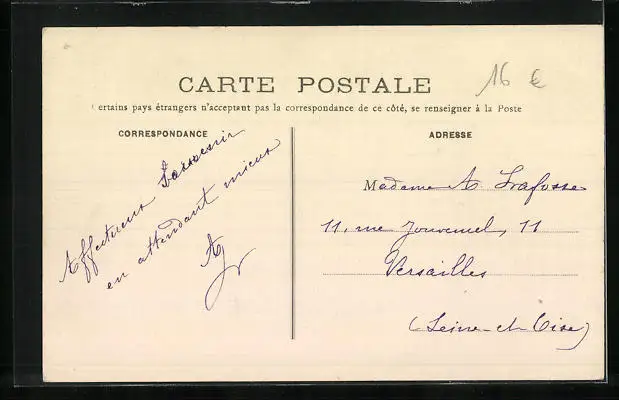 16 €
CARTE POSTALE
Certains pays étrangers n'acceptant pas la correspondance de ce côté, se renseigner à la Poste
CORRESPONDANCE
Affectueux
en attendant mieux
ADRESSE
Madame A. Lafosse
11, rue Jouvencel, 11
Versailles
(Seine-et-Oise)